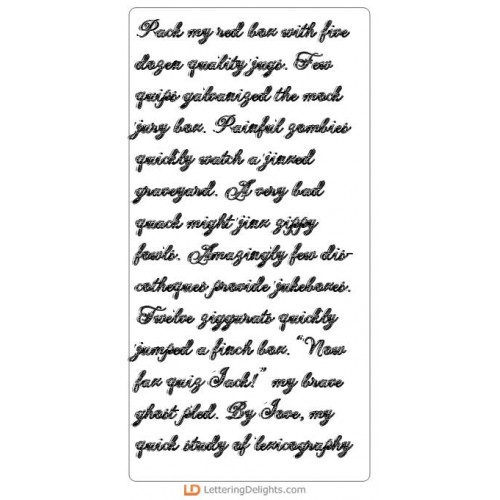 Pack my red box with five
dozen quality jugs. Few
quips galvanized the mock
jury box. Painful zombies
quickly watch a jinxed
graveyard. A very bad
quack might jinx zippy
fowls. Amazingly few dis-
cotheques provide jukeboxes.
Twelve ziggurats quickly
jumped a finch box. "Now
fax quiz Jack!" my brave
ghost pled. By Jove, my
quick study of lexicography
LD LetteringDelights.com